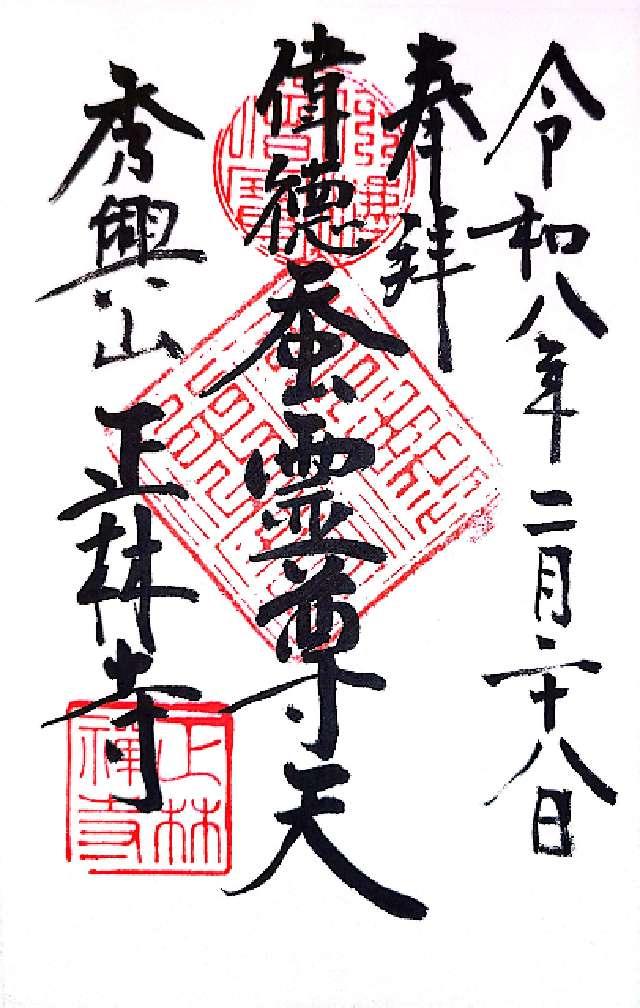 令和八年二月二十八日
奉拜
偉徳蚕霊尊天
秀興山 正林寺
正林禅寺